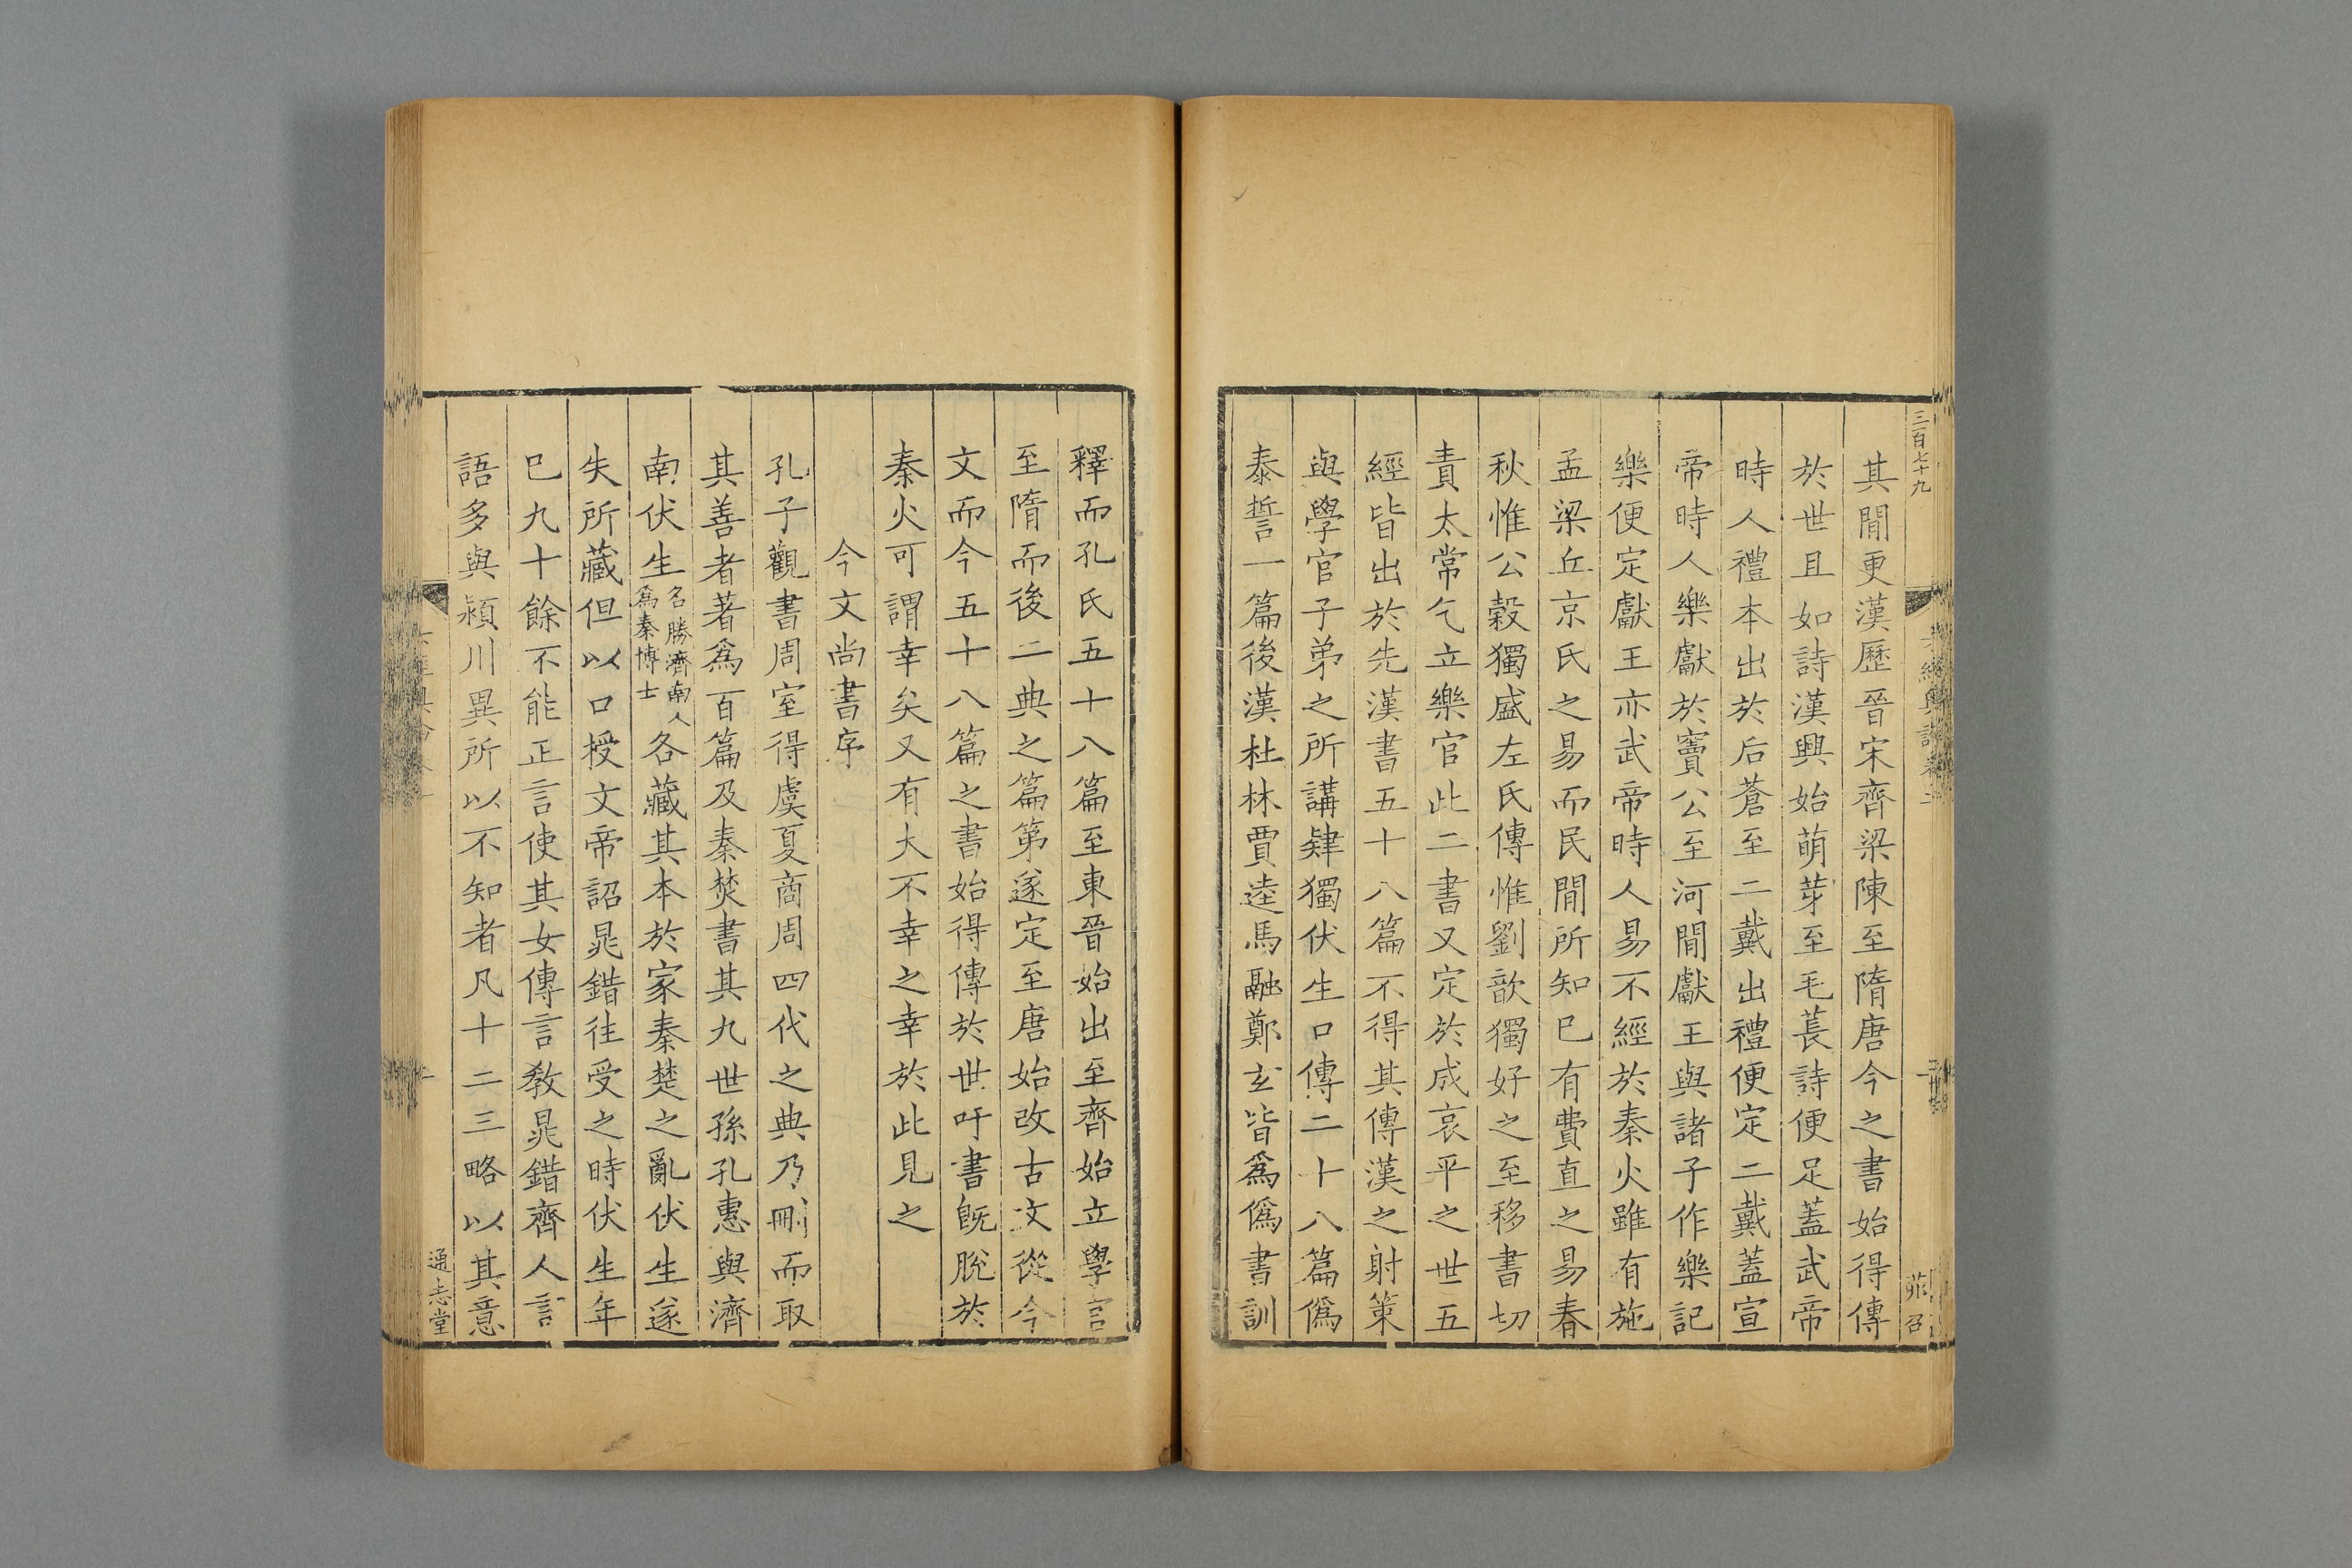 三百七十九
其間更漢歷晉宋齊梁陳至隋唐今之書始得傳
於世且如詩漢興始萌芽至毛萇詩便足蓋武帝
時人禮本出於后蒼至二戴出禮便定二戴蓋宣
帝時人樂獻於竇公至河間獻王與諸子作樂記
樂便定獻王亦武帝時人易不經於秦火雖有施
孟梁丘京氏之易而民間所知已有費直之易春
秋惟公穀獨盛左氏傳惟劉歆獨好之至移書切
責太常乞立樂官此二書又定於成哀平之世五
經皆出於先漢書五十八篇不得其傳漢之射策
與學官子弟之所講肄獨伏生口傳二十八篇僞
泰誓一篇後漢杜林賈逵馬融鄭玄皆爲僞書訓
釋而孔氏五十八篇至東晉始出至齊始立學官
至隋而後二典之篇第遂定至唐始改古文從今
文而今五十八篇之書始得傳於世吁書既脫於
秦火可謂幸矣又有大不幸之幸於此見之
今文尚書序
孔子觀書周室得虞夏商周四代之典乃刪而取
其善者著爲百篇及秦焚書其九世孫孔惠與濟
南伏生名勝濟南人爲秦博士各藏其本於家秦楚之亂伏生遂
失所藏但以口授文帝詔晁錯往受之時伏生年
已九十餘不能正言使其女傳言教晁錯齊人言
語多與潁川異所以不知者凡十二三略以其意
通志堂